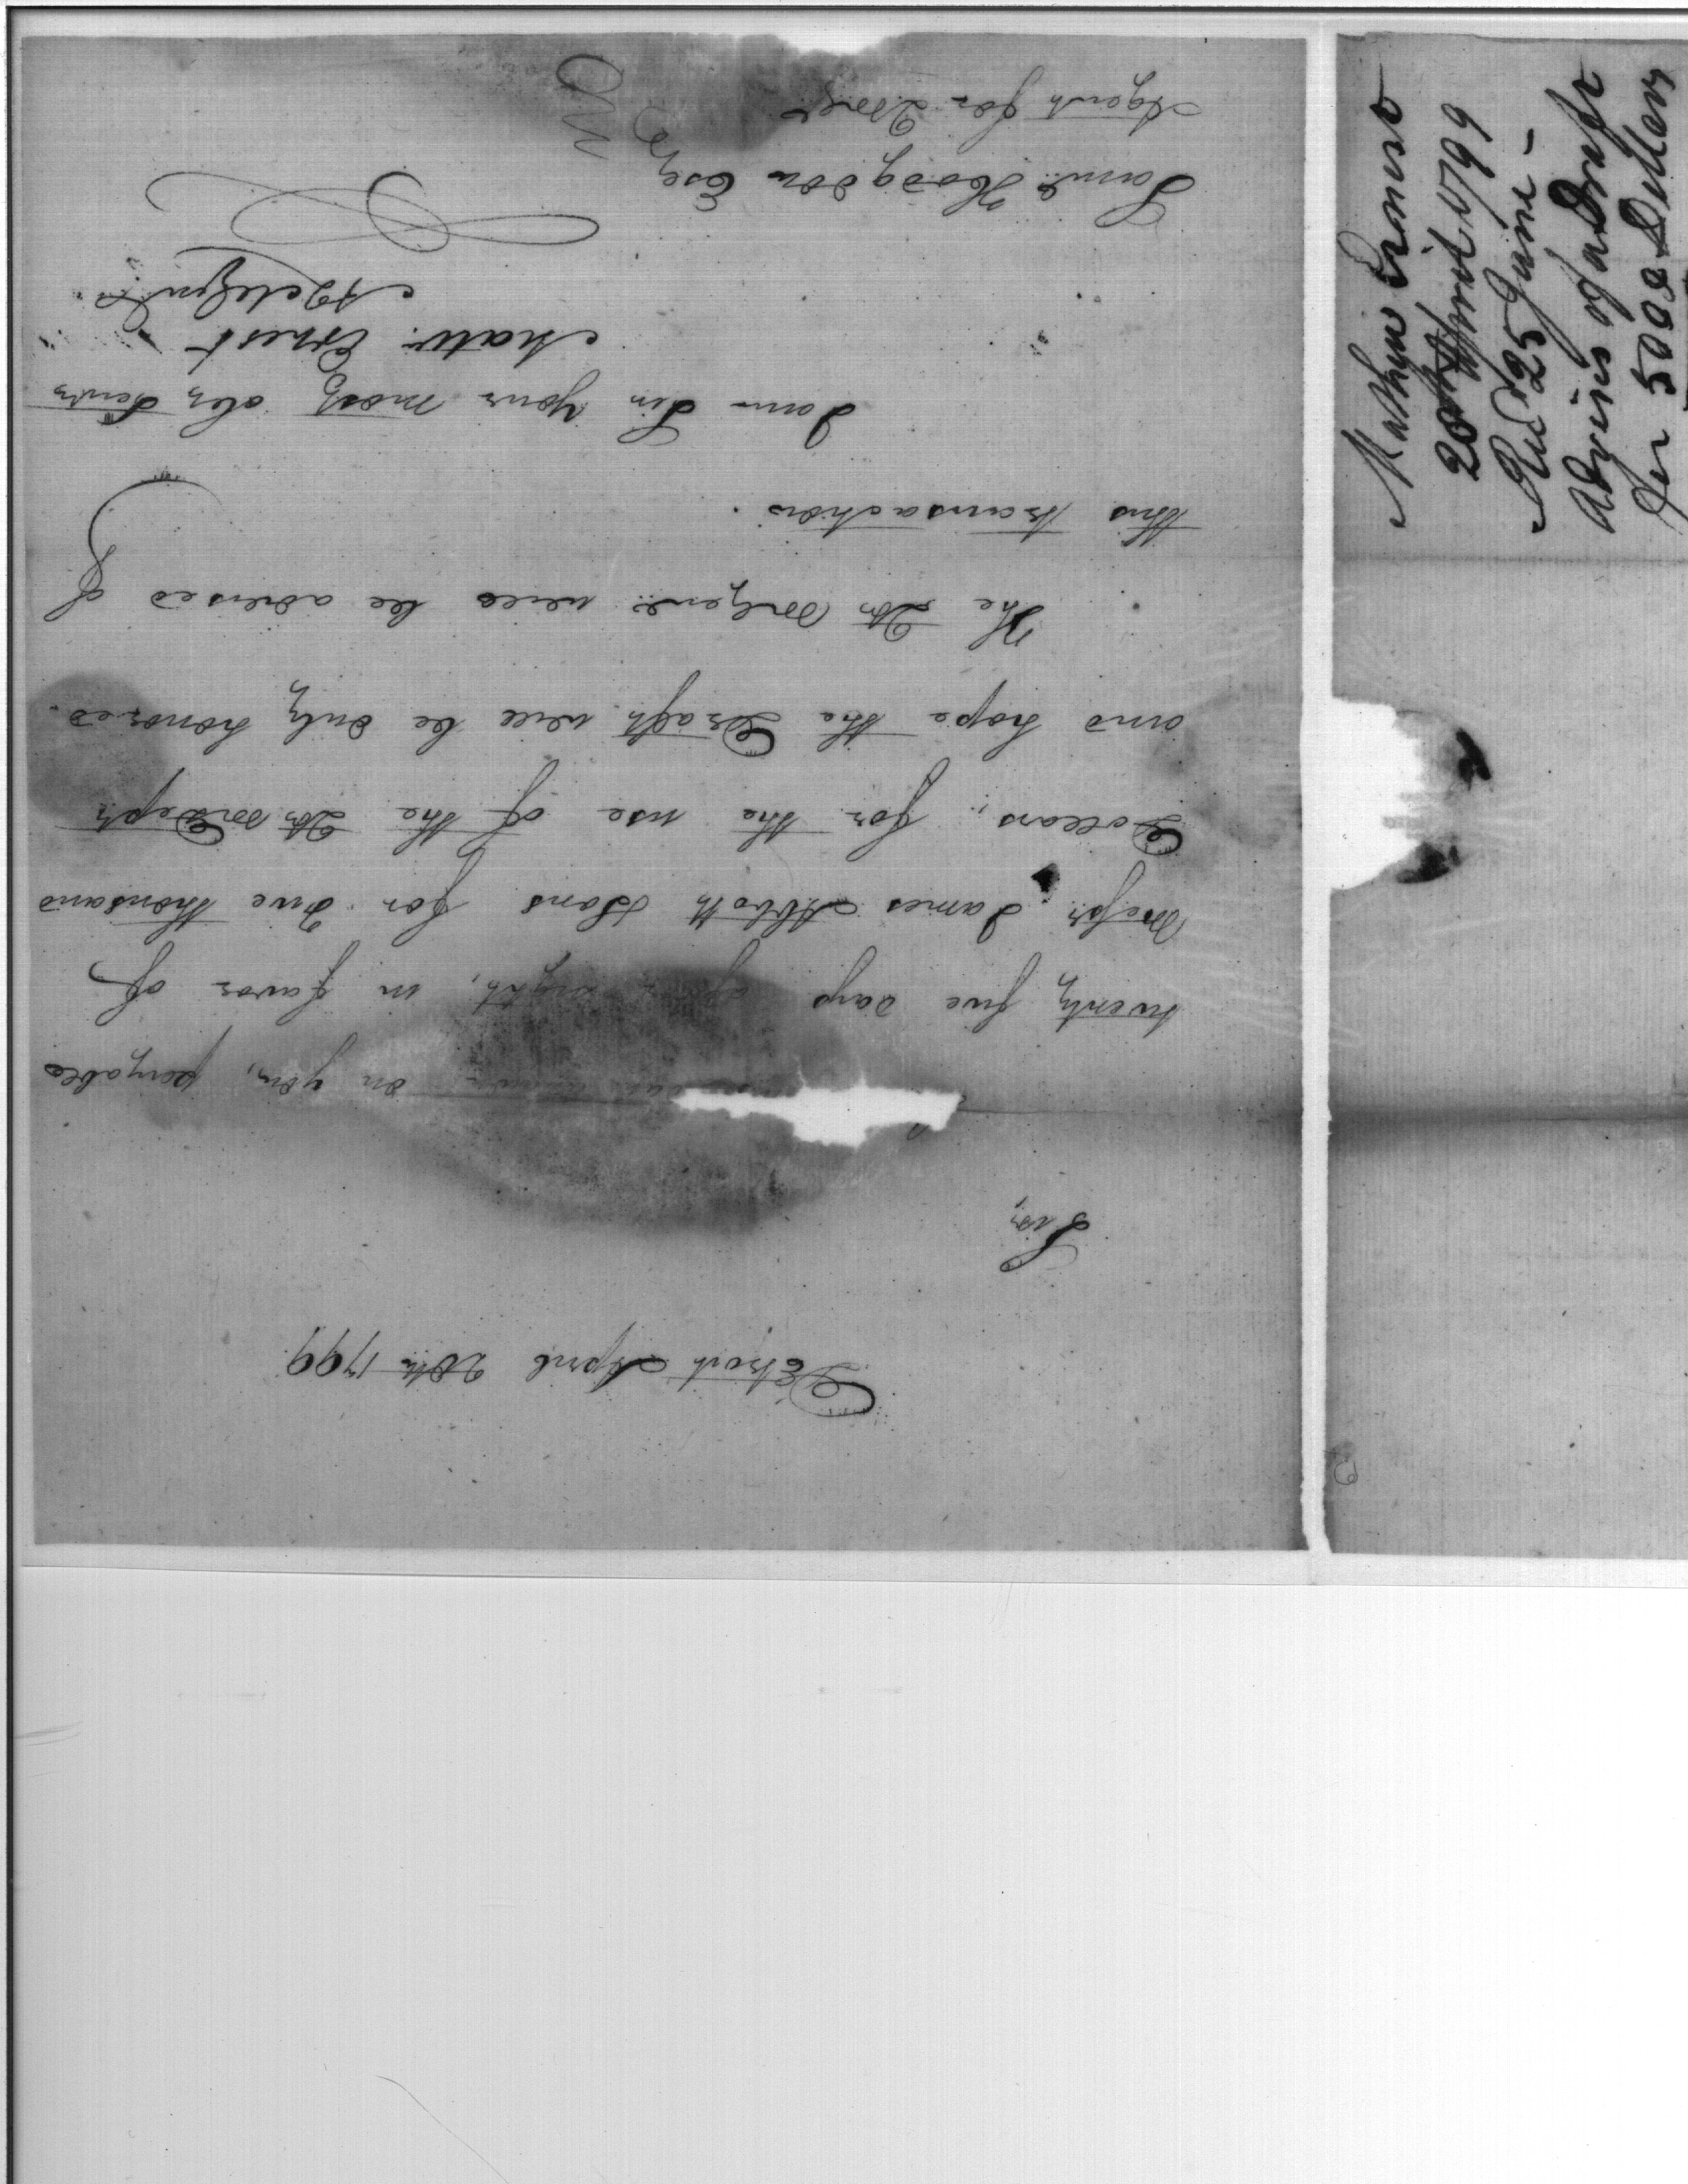 Detroit April 20th 1799
Sir,
on you, payable
twenty five days after sight, in favor of
Messrs James Abbott & Sons for five thousand
Dollars, for the use of the Qr Mr Dept
and hope the Draft will be duly honored.
The Qr Mr Genl. will be advised of
this transaction.
I am Sir your most obt Servt
Matw. Ernest
AQrMrGenl
Saml. Hodgdon Esq
Agent for
Mathew Ernest
20th April 1799
Recd 25 June -
Advises of a Draft
for 5000 Dollars